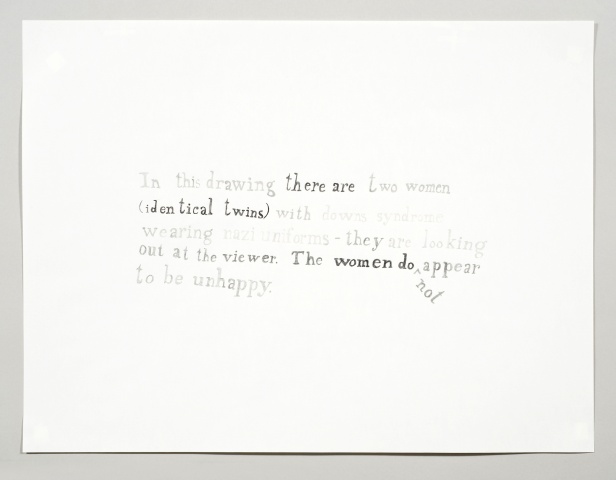 In this drawing there are two women
(identical twins) with downs syndrome
wearing nazi uniforms - they are looking
out at the viewer. The women do ^ appear
not
to be unhappy.